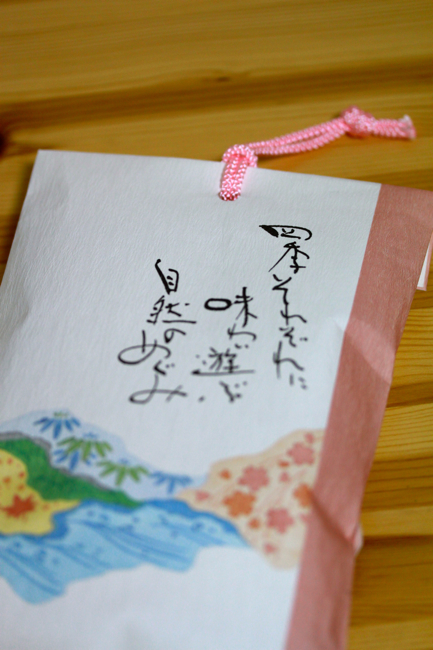 四季それぞれに
味わい遊ぶ
自然のめぐみ